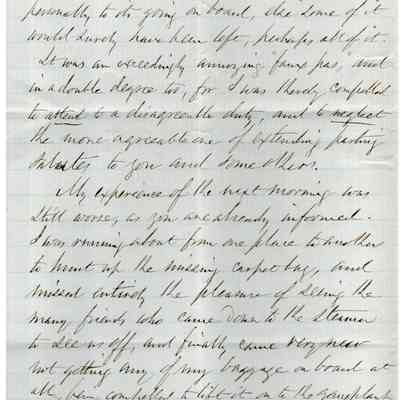 personally to its going on board, else some of it
would surely have been left, perhaps all of it.
It was an exceedingly annoying "faux pas" and
in a double degree too, for I was thereby compelled
to attend to a disagreeable duty, and to neglect
the more agreeable one of extending parting
salutes to you and some others.
My experience of the next morning was
still worse, as you are already informed.
I was running about from one place to another
to hunt up the missing carpet bag, and
missed entirely the pleasure of seeing the
many friends who came down to the steamer
to see us off, and finally came very near
not getting any of my baggage on board at
all, being compelled to it on to the gangplank